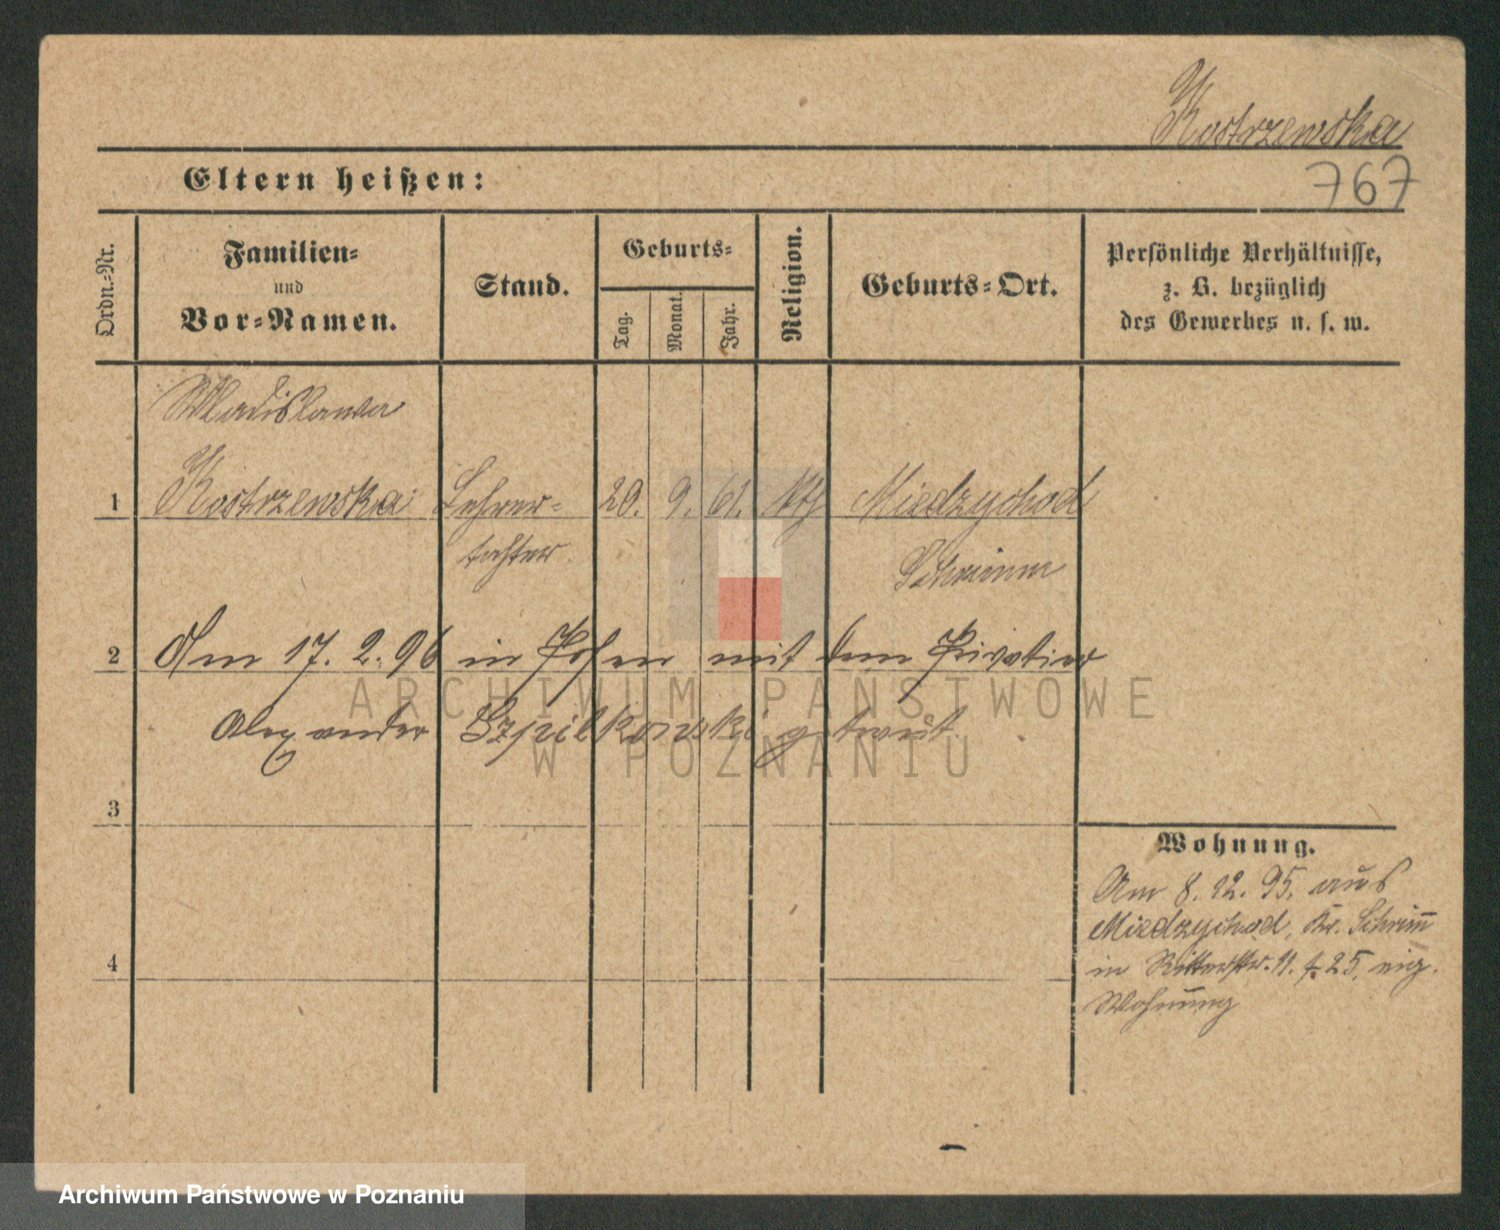 Kostrzewska
Eltern heißen:
767
Ordn.-Nr.
Familien-
und
Vor-Namen.
Stand.
Geburts-
Tag.
Monat.
Jahr.
Religion.
Geburts-Ort.
Persönliche Verhältnisse,
z. B. bezüglich
des Gewerbes u. s. w.
Wladislawa
1 Kostrzewska Lehrer- 20. 9. 61. Kth Miedzychod
tochter. Schrimm
2 Am 17. 2. 96 in Posen mit dem Privatier
Alexander Szpilkowski getraut.
ARCHIWUM PAŃSTWOWE
W POZNANIU
3
Wohnung.
Am 8. 12. 95. aus
Miedzychod, Kr. Schrim̄
in Ritterstr. 11. 25, eig.
Wohnung
4
Archiwum Państwowe w Poznaniu